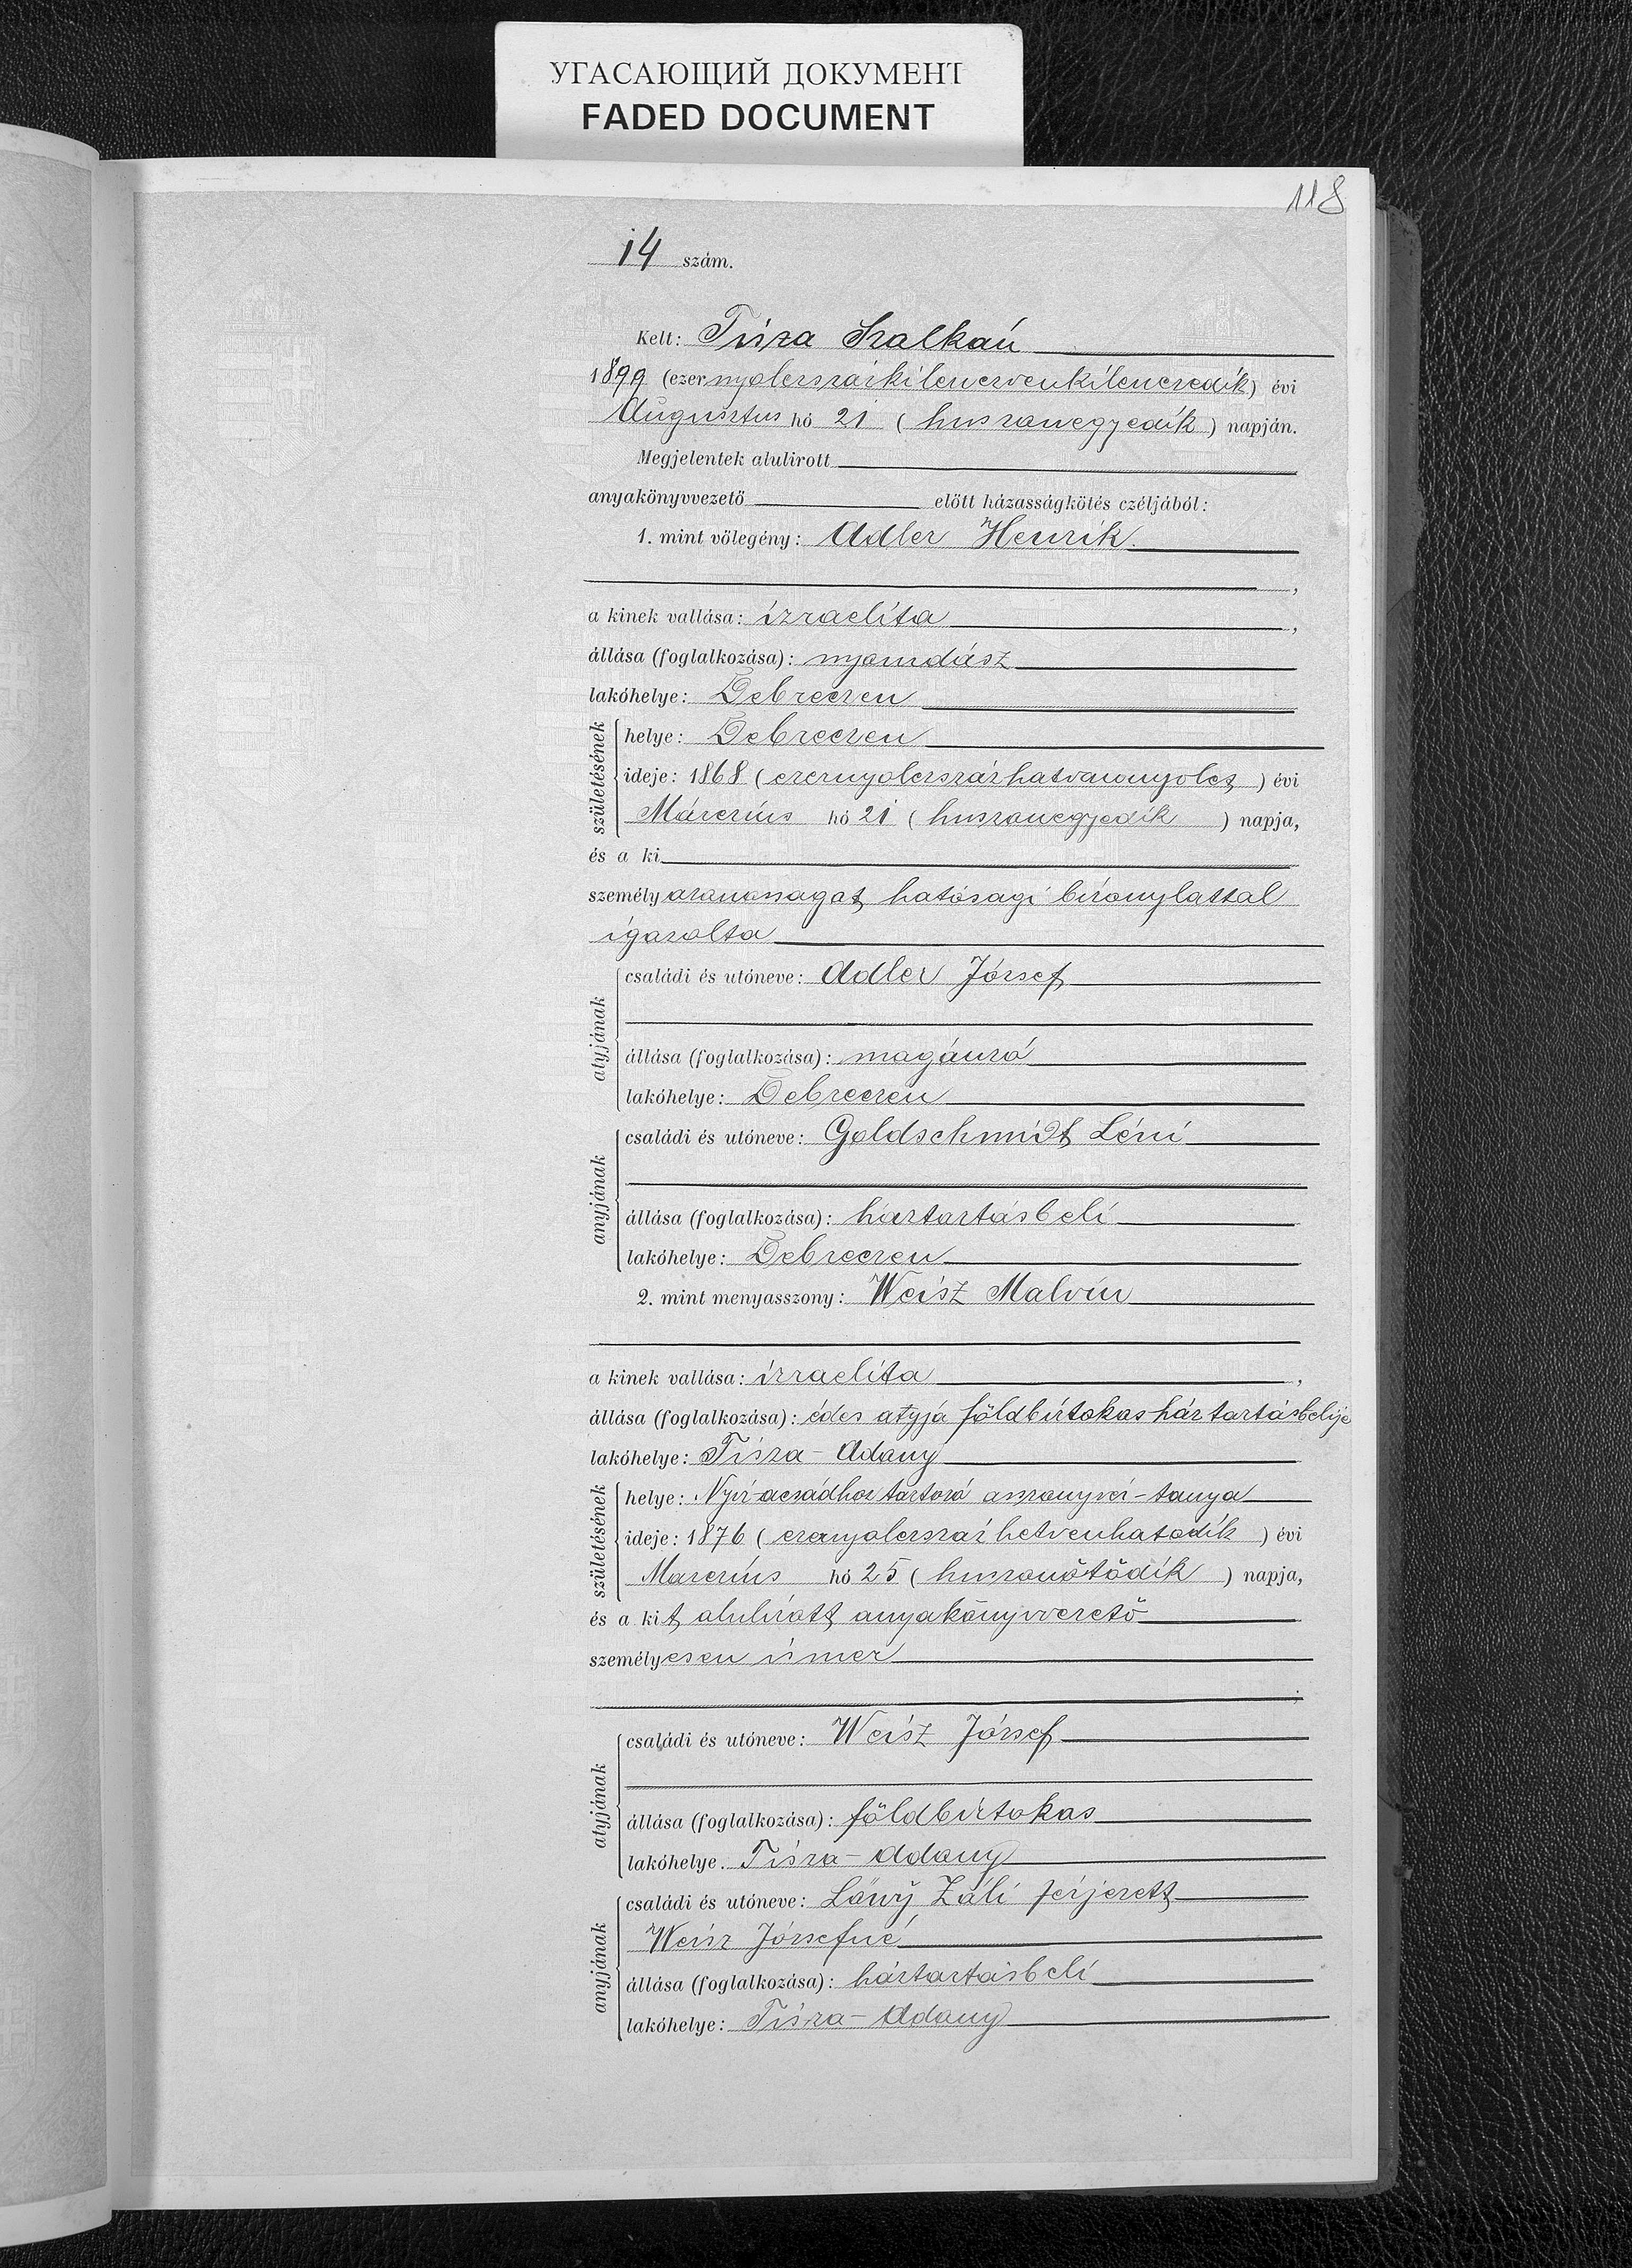 УГАСАЮЩИЙ ДОКУМЕНТ
FADED DOCUMENT
118
14 szám.
Kelt: Tisza Szalkán
1899 (ezernyolczszázkilenczvenkilenczedik) évi
Augusztus hó 21 (huszonegyedik) napján.
Megjelentek alulirott
anyakönyvvezető előtt házasságkötés czéljából:
1. mint vőlegény: Adler Henrik.
a kinek vallása: izraelita,
állása (foglalkozása): nyomdász
lakóhelye: Debreczen
születésének
helye: Debreczen
ideje: 1868 (ezernyolczszázhatvannyolcz) évi
Márczius hó 21 (huszonegyedik) napja,
és a ki
személyazonosságát hatósági bizonylattal
igazolta
atyjának
családi és utóneve: Adler József
állása (foglalkozása): magánzó
lakóhelye: Debreczen
anyjának
családi és utóneve: Goldschmidt Léni
állása (foglalkozása): háztartásbeli
lakóhelye: Debreczen
2. mint menyasszony: Weisz Malvin
a kinek vallása: izraelita,
állása (foglalkozása): édes atyja földbirtokas háztartásbelije
lakóhelye: Tisza-Adony
születésének
helye: Nyír-acsádhoz tartozó tanya
ideje: 1876 (ezernyolczszázhetvenhatodik) évi
Marczius hó 25 (huszonötödik) napja,
és a kit alulirott anyakönyvvezető
személyesen ismer
atyjának
családi és utóneve: Weisz József
állása (foglalkozása): földbirtokas
lakóhelye. Tisza-Adony
anyjának
családi és utóneve: Lőwy Záli férjezett
Weisz Józsefné
állása (foglalkozása): háztartásbeli
lakóhelye: Tisza-Adony